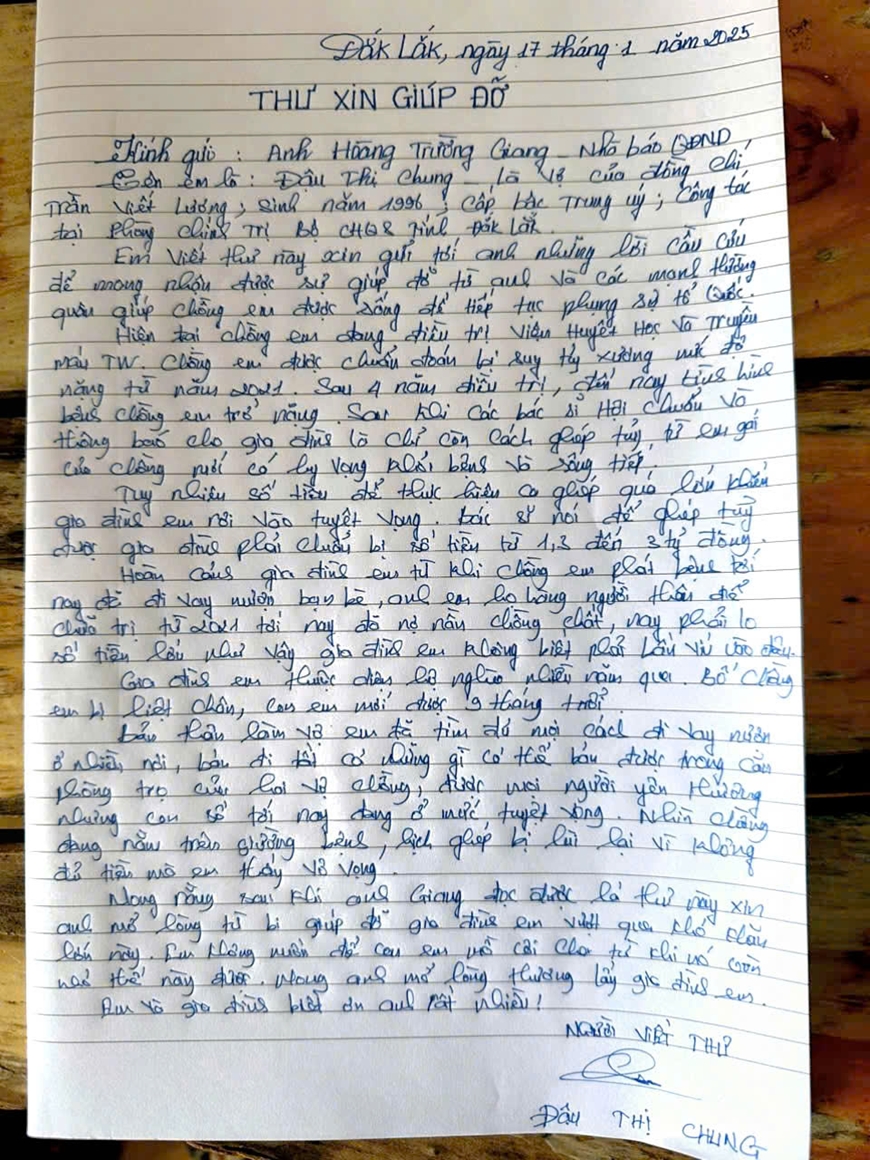 Đắk Lắk, ngày 17 tháng 1 năm 2025
THƯ XIN GIÚP ĐỠ
Kính gửi : Anh Hoàng Trường Giang - Nhà báo QĐND
Tên em là : Đậu Thị Chung - là vợ của đồng chí
Trần Viết Lương ; sinh năm 1996 ; Cấp bậc Trung úy ; Công tác
tại Phòng Chính Trị Bộ CHQS Tỉnh Đắk Lắk.
Em viết thư này xin gửi tới anh những lời cầu cứu
để mong nhận được sự giúp đỡ từ anh và các mạnh thường
quân giúp chồng em được sống để tiếp tục phụng sự tổ Quốc.
Hiện tại chồng em đang điều trị Viện Huyết Học và Truyền
máu TW. Chồng em được chuẩn đoán bị suy tủy xương mức độ
nặng từ năm 2021. Sau 4 năm điều trị, đến nay tình hình
bệnh chồng em trở nặng. Sau khi các bác sĩ Hội chuẩn và
thông báo cho gia đình là chỉ còn cách ghép tủy từ em gái
của chồng mới có hy vọng khỏi bệnh và sống tiếp.
Tuy nhiên số tiền để thực hiện ca ghép quá lớn khiến
gia đình em rơi vào tuyệt vọng. Bác sĩ nói để ghép tủy
được gia đình phải chuẩn bị số tiền từ 1,3 đến 3 tỷ đồng.
Hoàn cảnh gia đình em từ khi chồng em phát bệnh tới
nay đã đi vay mượn bạn bè, anh em họ hàng người thân để
chữa trị từ 2021 tới nay đã nợ nần chồng chất, nay phải lo
số tiền lớn như vậy gia đình em không biết phải bấu víu vào đâu.
Gia đình em thuộc diện hộ nghèo nhiều năm qua. Bố chồng
em bị liệt chân, con em mới được 9 tháng tuổi.
Bản thân làm vợ em đã tìm đủ mọi cách đi vay mượn
ở nhiều nơi, bán đi tất cả những gì có thể bán được trong căn
phòng trọ của hai vợ chồng, được mọi người yêu thương
nhưng con số tới nay đang ở mức tuyệt vọng. Nhìn chồng
đang nằm trên giường bệnh, lịch ghép bị lùi lại vì không
đủ tiền mà em thấy vô vọng.
Mong rằng sau khi anh Giang đọc được lá thư này xin
anh mở lòng từ bi giúp đỡ gia đình em vượt qua khó khăn
lớn này. Em không muốn để con em mồ côi cha từ khi nó còn
nhỏ thế này được. Mong anh mở lòng thương lấy gia đình em.
Em và gia đình biết ơn anh rất nhiều!
NGƯỜI VIẾT THƯ
ĐẬU THỊ CHUNG